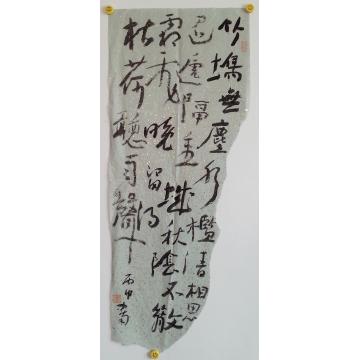 竹塢無塵水檻清相思
迢遞隔重城秋陰不散
霜飛晚留得
枯荷聽雨聲
丙申